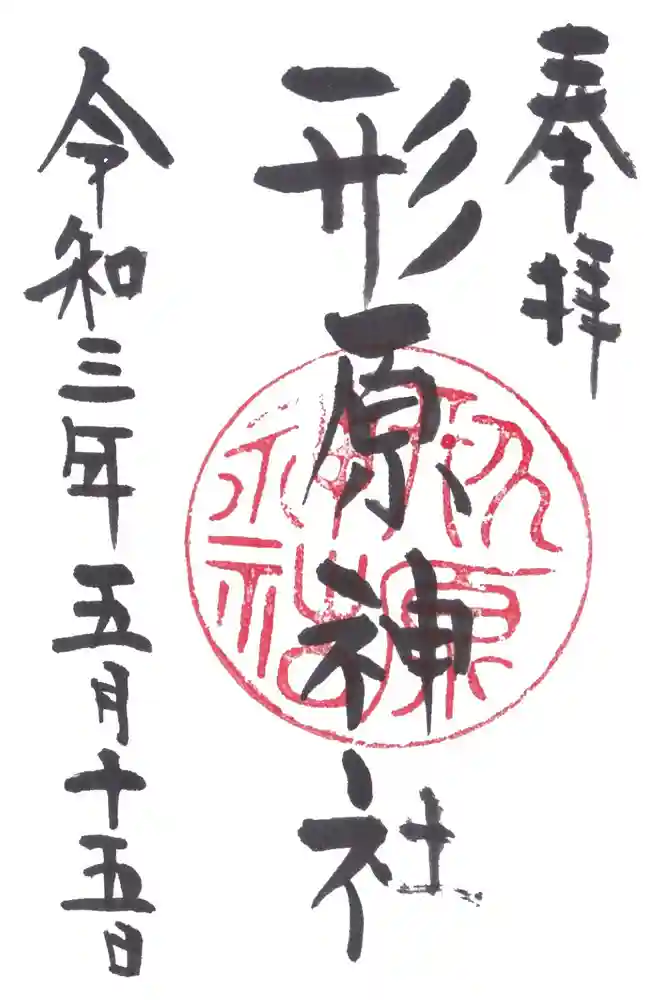 奉拝
形原神社
令和三年五月十五日
形原神社